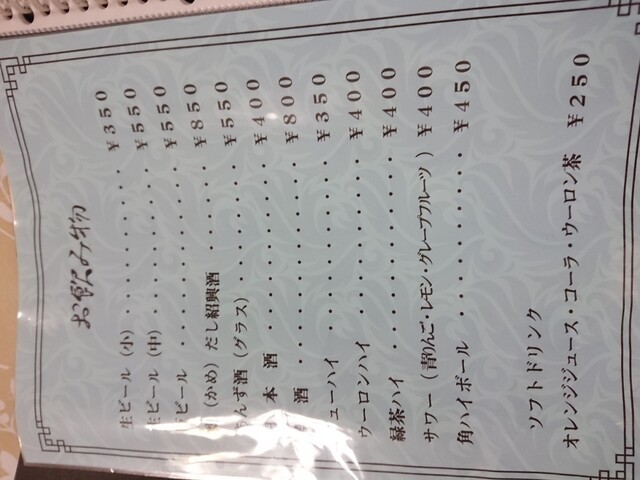 お飲み物
生ビール（小）・・・・・・・・・￥３５０
生ビール（中）・・・・・・・・・￥５５０
ビール・・・・・・・・・・・・￥５５０
（かめ）だし紹興酒・・・・・￥８５０
んず酒（グラス）・・・・・・・￥５５０
本 酒・・・・・・・・・・・￥４００
酒・・・・・・・・・・・・￥８００
ューハイ・・・・・・・・・・￥３５０
ウーロンハイ・・・・・・・・・・￥４００
緑茶ハイ・・・・・・・・・・・￥４００
サワー（青りんご・レモン・グレープフルーツ）￥４００
角ハイボール・・・・・・・・・・￥４５０
ソフトドリンク
オレンジジュース・コーラ・ウーロン茶 ￥２５０